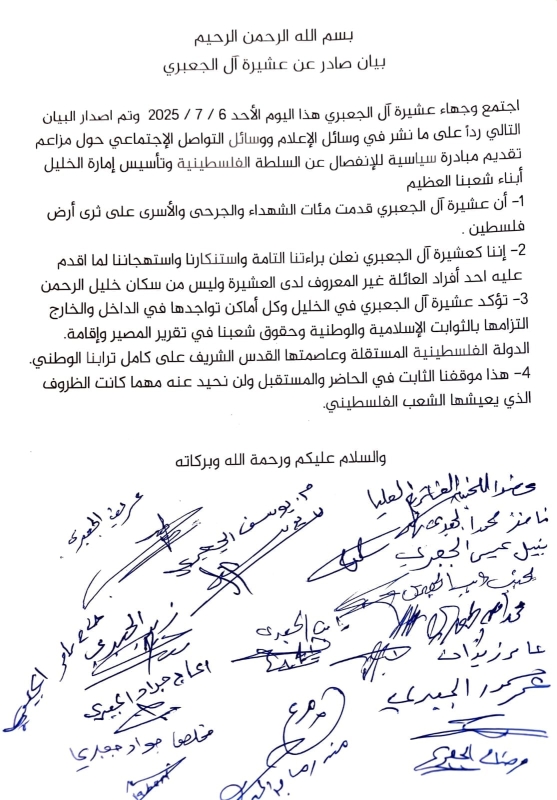 بسم الله الرحمن الرحيم
بيان صادر عن عشيرة آل الجعبري
اجتمع وجهاء عشيرة آل الجعبري هذا اليوم الأحد 6 / 7 / 2025 وتم اصدار البيان
التالي رداً على ما نشر في وسائل الإعلام ووسائل التواصل الإجتماعي حول مزاعم
تقديم مبادرة سياسية للإنفصال عن السلطة الفلسطينية وتأسيس إمارة الخليل
أبناء شعبنا العظيم
1- أن عشيرة آل الجعبري قدمت مئات الشهداء والجرحى والأسرى على ثرى أرض
فلسطين .
2- إننا كعشيرة آل الجعبري نعلن براءتنا التامة واستنكارنا واستهجاننا لما اقدم
عليه احد أفراد العائلة غير المعروف لدى العشيرة وليس من سكان خليل الرحمن
3- تؤكد عشيرة آل الجعبري في الخليل وكل أماكن تواجدها في الداخل والخارج
التزامها بالثوابت الإسلامية والوطنية وحقوق شعبنا في تقرير المصير وإقامة.
الدولة الفلسطينية المستقلة وعاصمتها القدس الشريف على كامل ترابنا الوطني.
4- هذا موقفنا الثابت في الحاضر والمستقبل ولن نحيد عنه مهما كانت الظروف
الذي يعيشها الشعب الفلسطيني.
والسلام عليكم ورحمة الله وبركاته
م. يوسف الجعبري
نبيل عيسى الجعبري
زيد الجعبري
الحاج جواد الجعبري
الجعبري